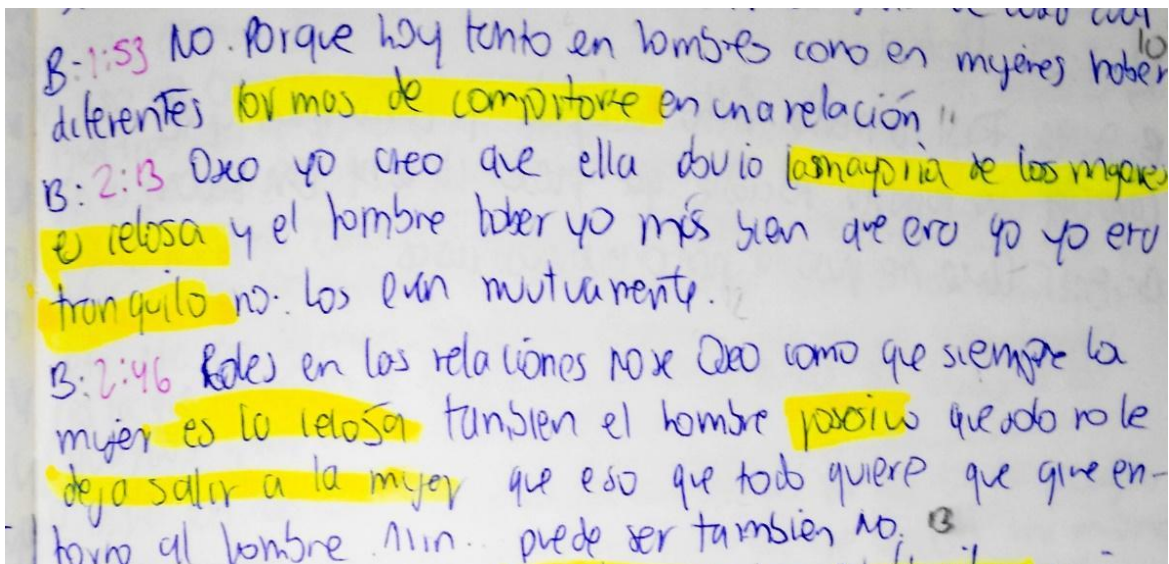 10
B: 1:53 NO. Porque hoy tanto en hombres como en mujeres haber
diferentes formas de comportarse en una relación "
B: 2:13 Oseo yo creo que ella obvio las mayoria de las mujeres
es celosa y el hombre haber yo más bien que ero yo yo ero
tranquilo no. los eran mutuamente.
B: 2:46 Roles en las relaciones no se Oseo como que siempre la
mujer es la celosa tambien el hombre posesivo que no le
deja salir a la mujer que eso que todo quiere que gire en-
torno al hombre. puede ser también no. 13